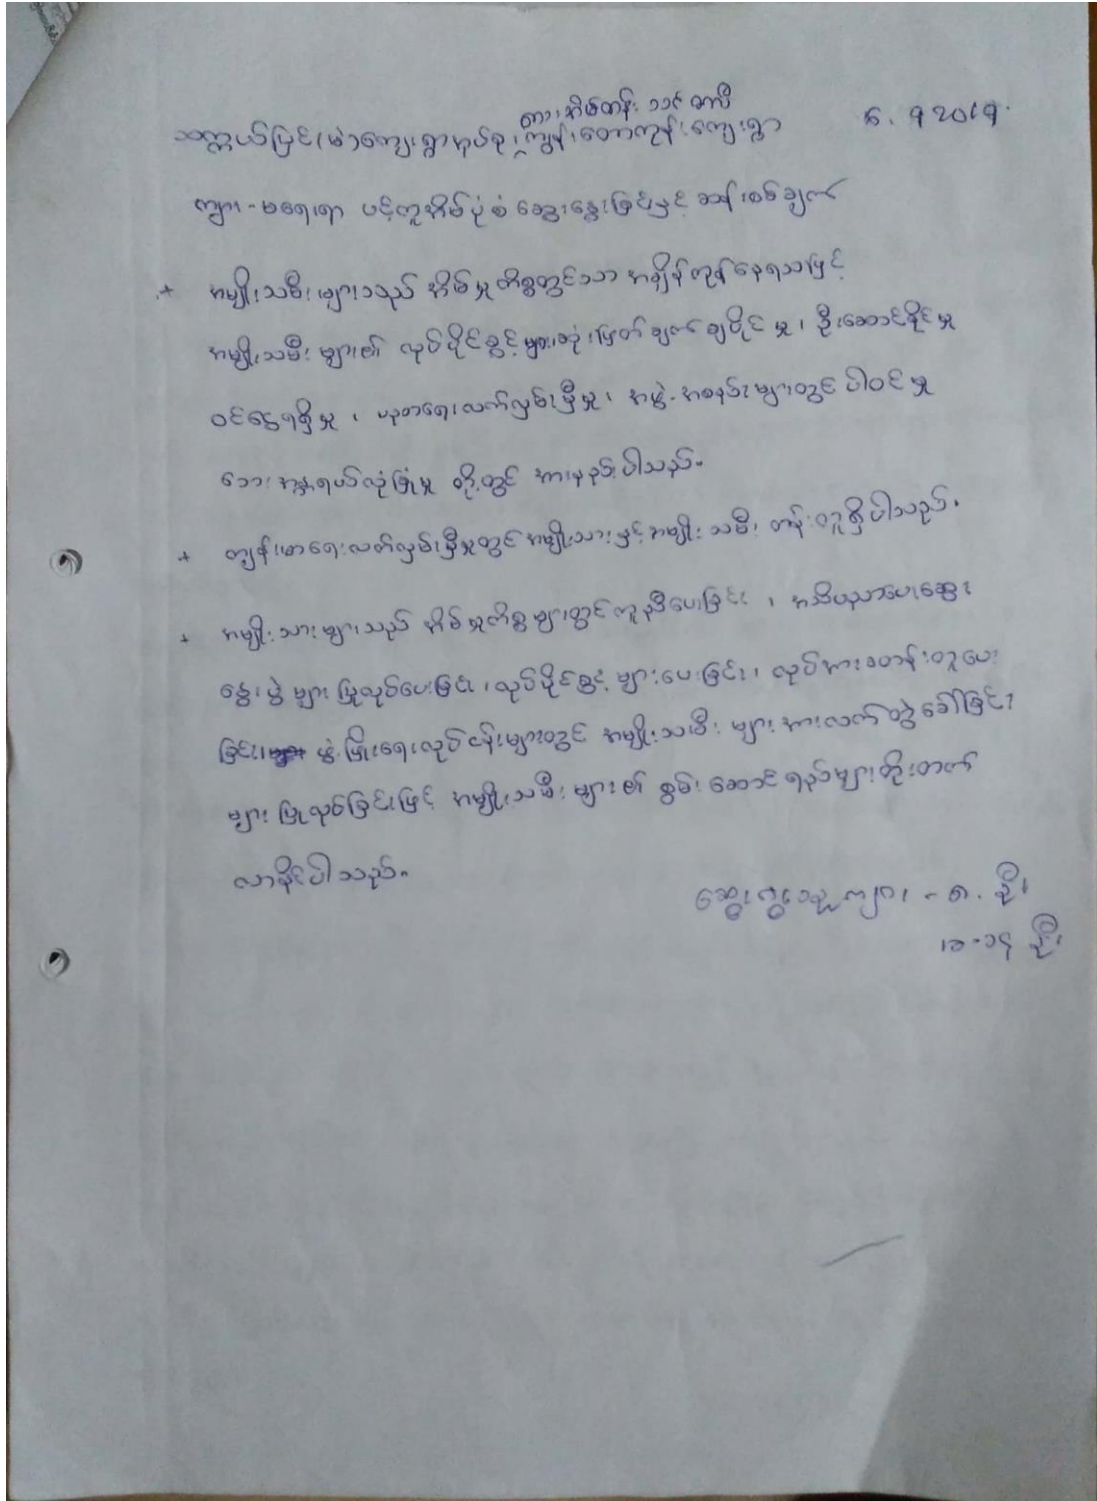 တားအိမ်တန်း ၁၁၉
သက္ကယ်ပြင်(မဲ)ကျေးရွာအုပ်စု၊ ကျွန်းတောကုန်းကျေးရွာ
ကျား - မရေးရာ ပင့်ကူအိမ်ပုံစံ ဆွေးနွေးခြင်းနှင့် ဆန်းစစ်ချက်
+ အမျိုးသမီးများသည် အိမ်မှုကိစ္စတွင်သာ အချိန်ကုန်နေရသဖြင့်
အမျိုးသမီးများ၏ လုပ်ပိုင်ခွင့် ဆုံးဖြတ်ချက်ချပိုင်မှု၊ ဦးဆောင်နိုင်မှု
ဝင်ငွေရရှိမှု၊ ပညာရေးလက်လှမ်းမှီမှု၊ အဖွဲ့အစည်းများတွင် ပါဝင်မှု
ဘေးအန္တရယ်လုံခြုံမှု တို့တွင် အားနည်းပါသည်။
+ ကျန်းမာရေးလက်လှမ်းမှီမှုတွင် အမျိုးသားနှင့်အမျိုးသမီး တန်းတူရှိပါသည်။
+ အမျိုးသားများသည် အိမ်မှုကိစ္စများတွင်ကူညီပေးခြင်း၊ အသိပညာပေးဆွေး
နွေးပွဲများ ပြုလုပ်ပေးခြင်း၊ လုပ်ပိုင်ခွင့်များပေးခြင်း၊ လုပ်အားခတန်းတူပေး
ခြင်း၊ ဖွံ့ဖြိုးရေးလုပ်ငန်းများတွင် အမျိုးသမီးများအားလက်တွဲခေါ်ခြင်း
များ ပြုလုပ်ခြင်းဖြင့် အမျိုးသမီးများ၏ စွမ်းဆောင်ရည်များတိုးတက်
လာနိုင်ပါသည်။
ဆွေးနွေးသူ ကျား - ၈ ဦး
မ - ၁၄ ဦး